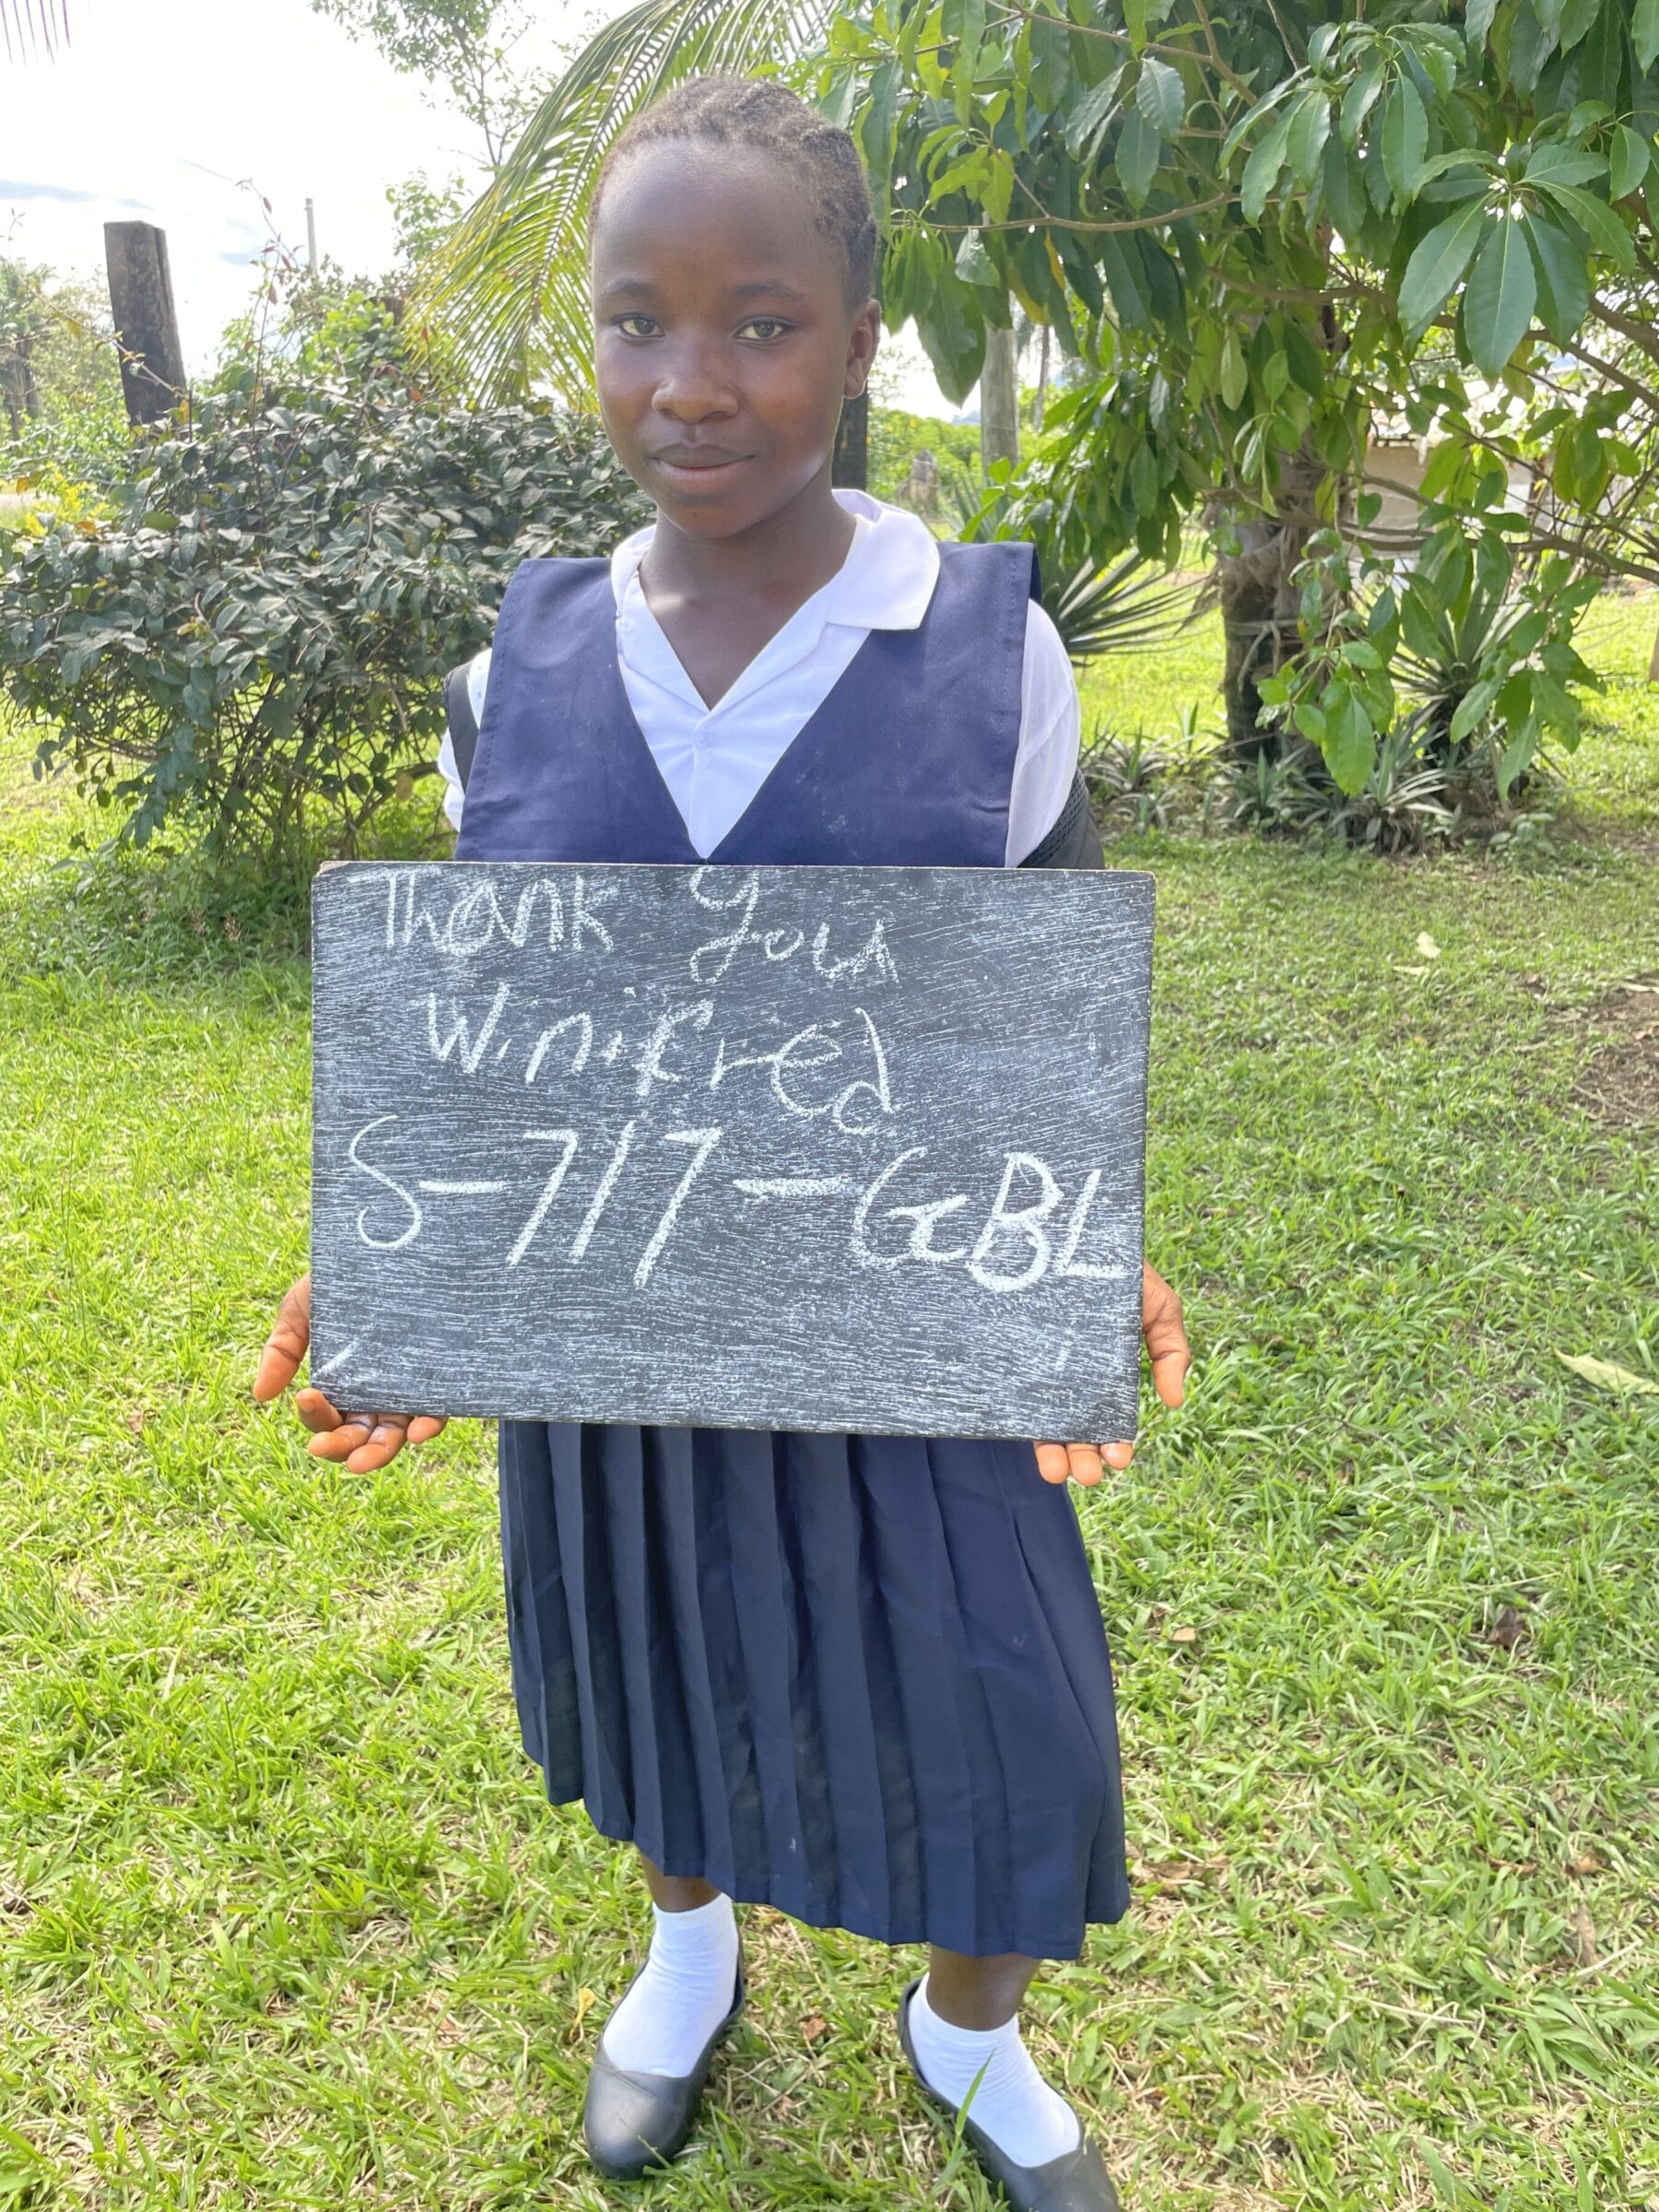 Thank you
Winifred
S-717-GBL